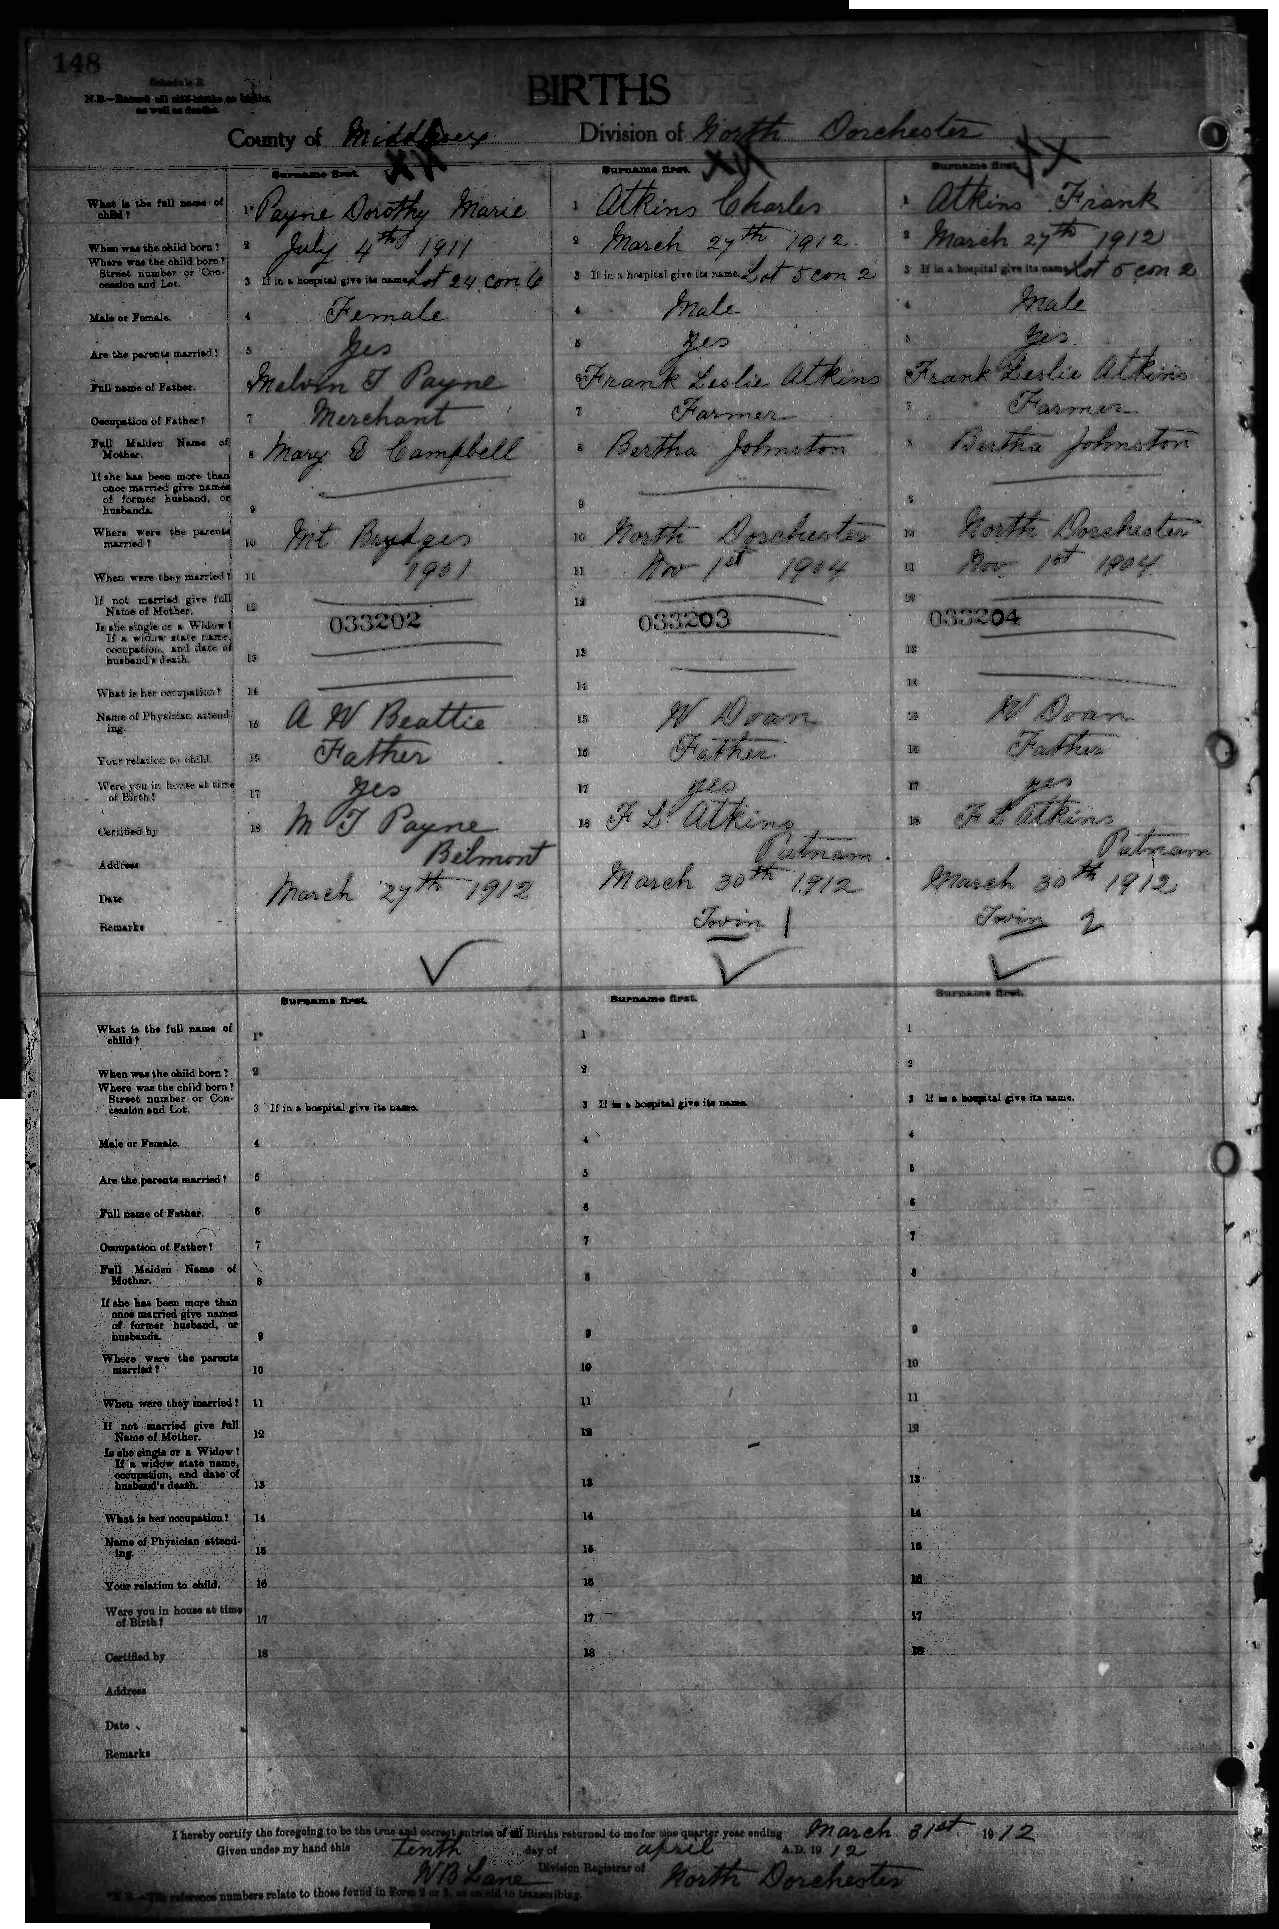 148
Schedule B.
N.B.—Record all still-births as births, as well as deaths.
BIRTHS
County of Middlesex Division of North Dorchester
Surname first. Surname first. Surname first.
What is the full name of child? 1* Payne Dorothy Marie 1 Atkins Charles 1 Atkins Frank
When was the child born? 2 July 4th 1911 2 March 27th 1912 2 March 27th 1912
Where was the child born?
Street number or Con-
cession and Lot. 3 If in a hospital give its name. Lot 24 con 6 3 If in a hospital give its name. Lot 5 con 2 3 If in a hospital give its name. Lot 5 con 2
Male or Female. 4 Female 4 Male 4 Male
Are the parents married? 5 Yes 5 yes 5 yes
Full name of Father. Melvin T Payne 6 Frank Leslie Atkins Frank Leslie Atkins
Occupation of Father? 7 Merchant 7 Farmer 7 Farmer
Full Maiden Name of
Mother. 8 Mary E Campbell 8 Bertha Johnston 8 Bertha Johnston
If she has been more than
once married give names
of former husband, or
husbands. 9 9 9
Where were the parents
married? 10 Mt Brydges 10 North Dorchester 10 North Dorchester
When were they married? 11 1901 11 Nov 1st 1904 11 Nov 1st 1904
If not married give full
Name of Mother. 12 12 12
033202 033203 033204
Is she single or a Widow?
If a widow state name,
occupation, and date of
husband's death. 13 13 13
What is her occupation? 14 14 14
Name of Physician attend-
ing. 15 A W Beattie 15 W Doan 15 W Doan
Your relation to child. 16 Father 16 Father 16 Father
Were you in house at time
of Birth? 17 Yes 17 yes 17 yes
Certified by 18 M T Payne 18 F L Atkins 18 F L Atkins
Address Belmont Putnam Putnam
Date March 27th 1912 March 30th 1912 March 30th 1912
Remarks Twin 1 Twin 2
Surname first. Surname first. Surname first.
What is the full name of
child? 1* 1 1
When was the child born? 2 2 2
Where was the child born?
Street number or Con-
cession and Lot. 3 If in a hospital give its name. 3 If in a hospital give its name. 3 If in a hospital give its name.
Male or Female. 4 4 4
Are the parents married? 5 5 5
Full name of Father. 6 6 6
Occupation of Father? 7 7 7
Full Maiden Name of
Mother. 8 8 8
If she has been more than
once married give names
of former husband, or
husbands. 9 9 9
Where were the parents
married? 10 10 10
When were they married? 11 11 11
If not married give full
Name of Mother. 12 12 12
Is she single or a Widow?
If a widow state name,
occupation, and date of
husband's death. 13 13 13
What is her occupation? 14 14 14
Name of Physician attend-
ing. 15 15 15
Your relation to child. 16 16 16
Were you in house at time
of Birth? 17 17 17
Certified by 18 18 18
Address
Date
Remarks
I hereby certify the foregoing to be the true and correct entries of all Births returned to me for the quarter year ending March 31st 1912
Given under my hand this tenth day of april A.D. 1912
W B Lane Division Registrar of North Dorchester
*N.B.—The reference numbers relate to those found in Form 2 or 3, as an aid to transcribing.